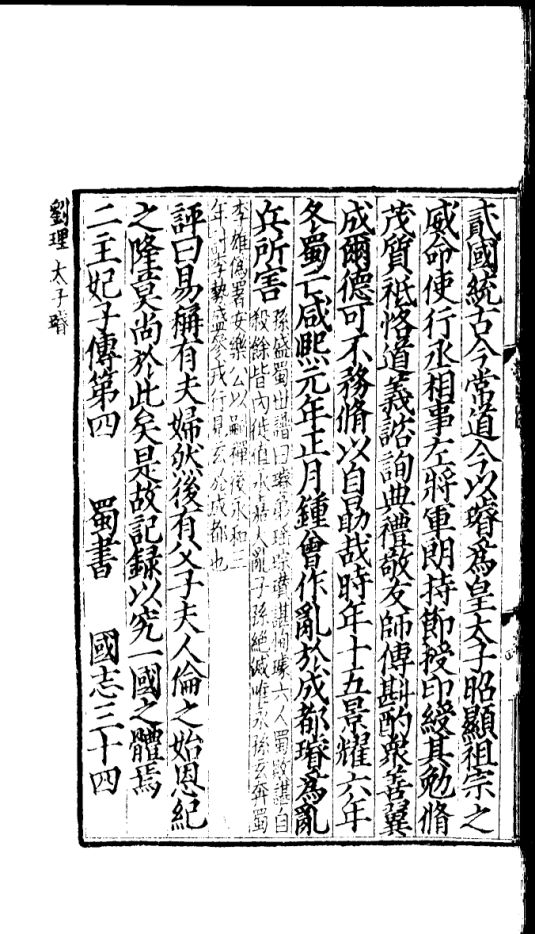 貳國統古今常道今以璿為皇太子昭顯祖宗之
威命使行丞相事左將軍朗持節授印綬其勉脩
茂質祗恪道義諮詢典禮敬友師傅斟酌衆善翼
成爾德可不務脩以自勗哉時年十五景耀六年
冬蜀亡咸熙元年正月鍾會作亂於成都璿為亂
兵所害
孫盛蜀世譜曰璿弟瑤琮瓚諶恂璩六人蜀敗諶自
殺餘皆內徙值永嘉大亂子孫絕滅唯永孫玄奔蜀
李雄偽署安樂公以嗣禪後永和三
年討李勢盛參戎行見玄於成都也
評曰易稱有夫婦然後有父子夫人倫之始恩紀
之隆莫尚於此矣是故記録以究一國之體焉
二主妃子傳第四 蜀書 國志三十四
劉理 太子璿